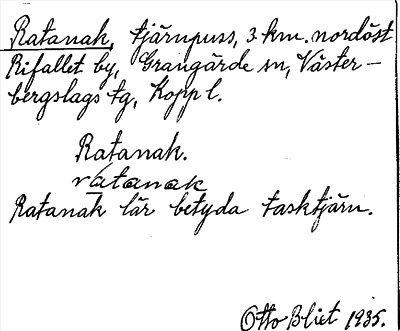 Ratanak, tjärnpuss, 3 km. nordöst
Rifallet by, Grangärde sn, Väster-
bergslags tg, Kopp l.
Ratanak.
ratanak
Ratanak lär betyda tasktjärn.
Otto Blixt 1935.